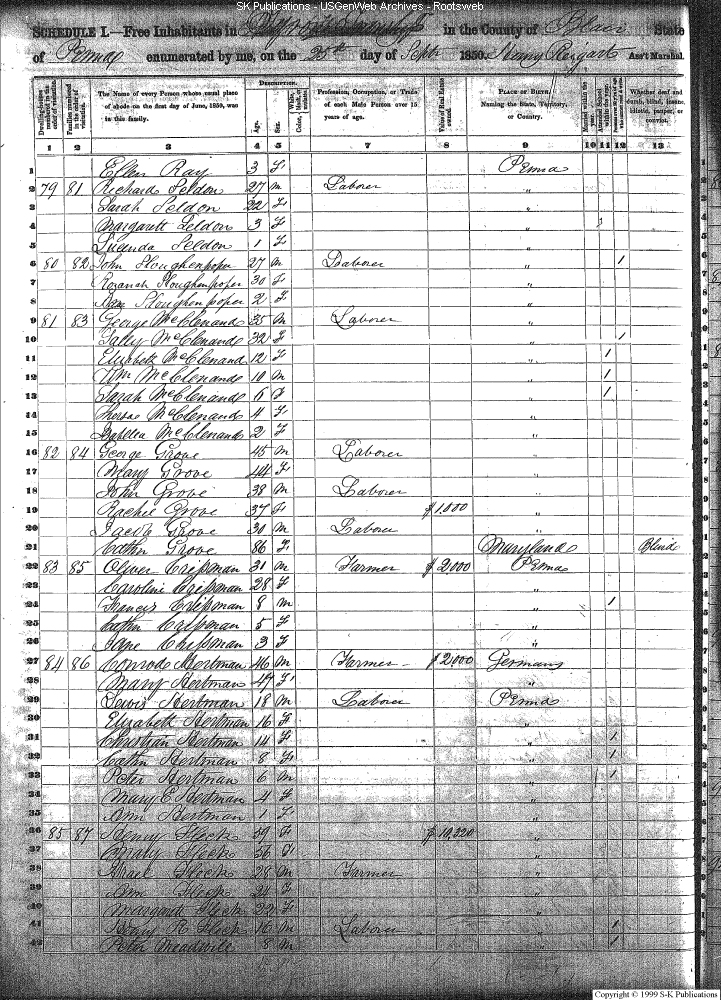 SK Publications - USGenWeb Archives - Rootsweb
SCHEDULE I.—Free Inhabitants in in the County of Blair State
of Penna enumerated by me, on the 25th day of Sept 1850. Henry Reigart Ass't Marshal.
Dwelling-houses numbered in the order of visitation.
Families numbered in the order of visitation.
The Name of every Person whose usual place of abode on the first day of June, 1850, was in this family.
DESCRIPTION.
Age.
Sex.
White, black, or mulatto.
Color,
Profession, Occupation, or Trade of each Male Person over 15 years of age.
Value of Real Estate owned.
PLACE OF BIRTH.
Naming the State, Territory, or Country.
Married within the year.
Attended School within the year.
Whether deaf and dumb, blind, insane, idiotic, pauper, or convict.
1 2 3 4 5 6 7 8 9 10 11 12 13
1 Ellen Ray 3 F Penna
2 79 81 Richard Seldon 27 M Laborer "
3 Sarah Seldon 22 F "
4 Margarett Seldon 3 F "
5 Lucinda Seldon 1 F "
6 80 82 John Sloughenpoper 27 M Laborer " /
7 Rozanah Sloughenpoper 30 F "
8 Sloughenpoper 2 F "
9 81 83 George McClenand 35 M Laborer "
10 Sally McClenand 32 F " /
11 Elizabeth McClenand 12 F " /
12 Wm McClenand 10 M " /
13 Sarah McClenand 6 F " /
14 McClenand 4 F "
15 Isabella McClenand 2 F "
16 82 84 George Grove 45 M Laborer "
17 Mary Grove 44 F "
18 John Grove 38 M Laborer "
19 Rachel Grove 37 F $1,000 "
20 Jacob Grove 30 M Laborer "
21 Cathn Grove 86 F Maryland Blind
22 83 85 Oliver Crissman 31 M Farmer $2,000 Penna
23 Caroline Crissman 28 F "
24 Francis Crissman 8 M " /
25 Cathn Crissman 5 F "
26 Jane Crissman 3 F "
27 84 86 Conrode Hertman 46 M Farmer $2,000 Germany
28 Mary Hertman 47 F "
29 Lewis Hertman 18 M Laborer Penna
30 Elizabeth Hertman 16 F "
31 Christian Hertman 14 F " /
32 Cathn Hertman 8 F " /
33 Peter Hertman 6 M " /
34 Mary E Hertman 4 F "
35 Ann Hertman 1 F "
36 85 87 Henry Fleck 59 $10,320 "
37 Mary Fleck 56 F "
38 Fleck 28 M Farmer "
39 Ann Fleck 24 F "
40 Margaret Fleck 22 F "
41 Henry Fleck 16 M Laborer " /
42 Peter Meadville 8 M " /
Copyright © 1999 S-K Publications